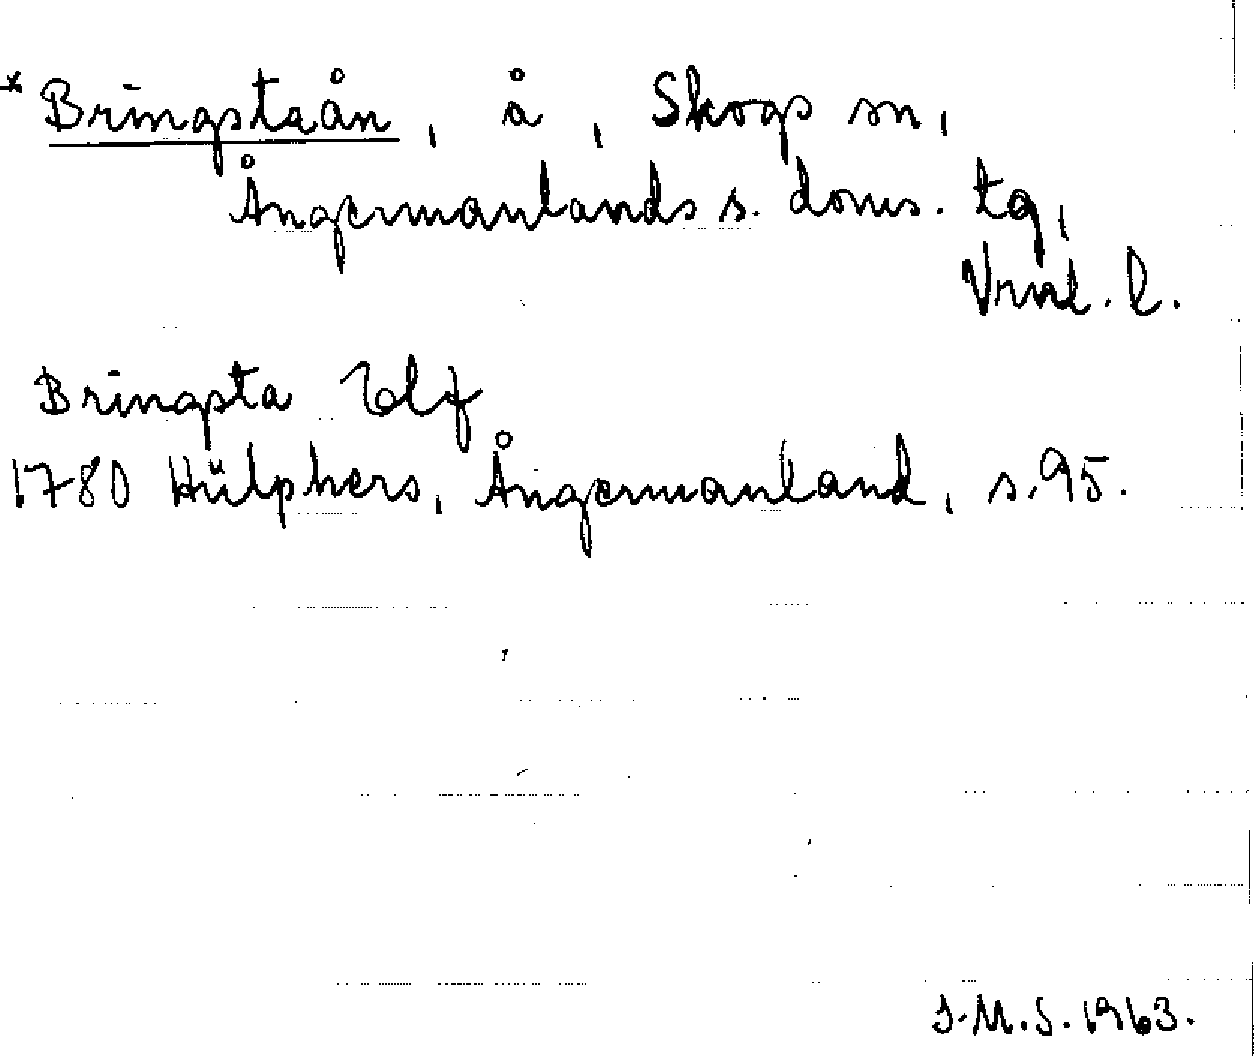 * Bringstaån, å, Skogs sn,
Ångermanlands s. doms. tg,
Vrnl. l.
Bringsta Elf
1780 Hülphers, Ångermanland, s. 95.
J.M.S. 1963.